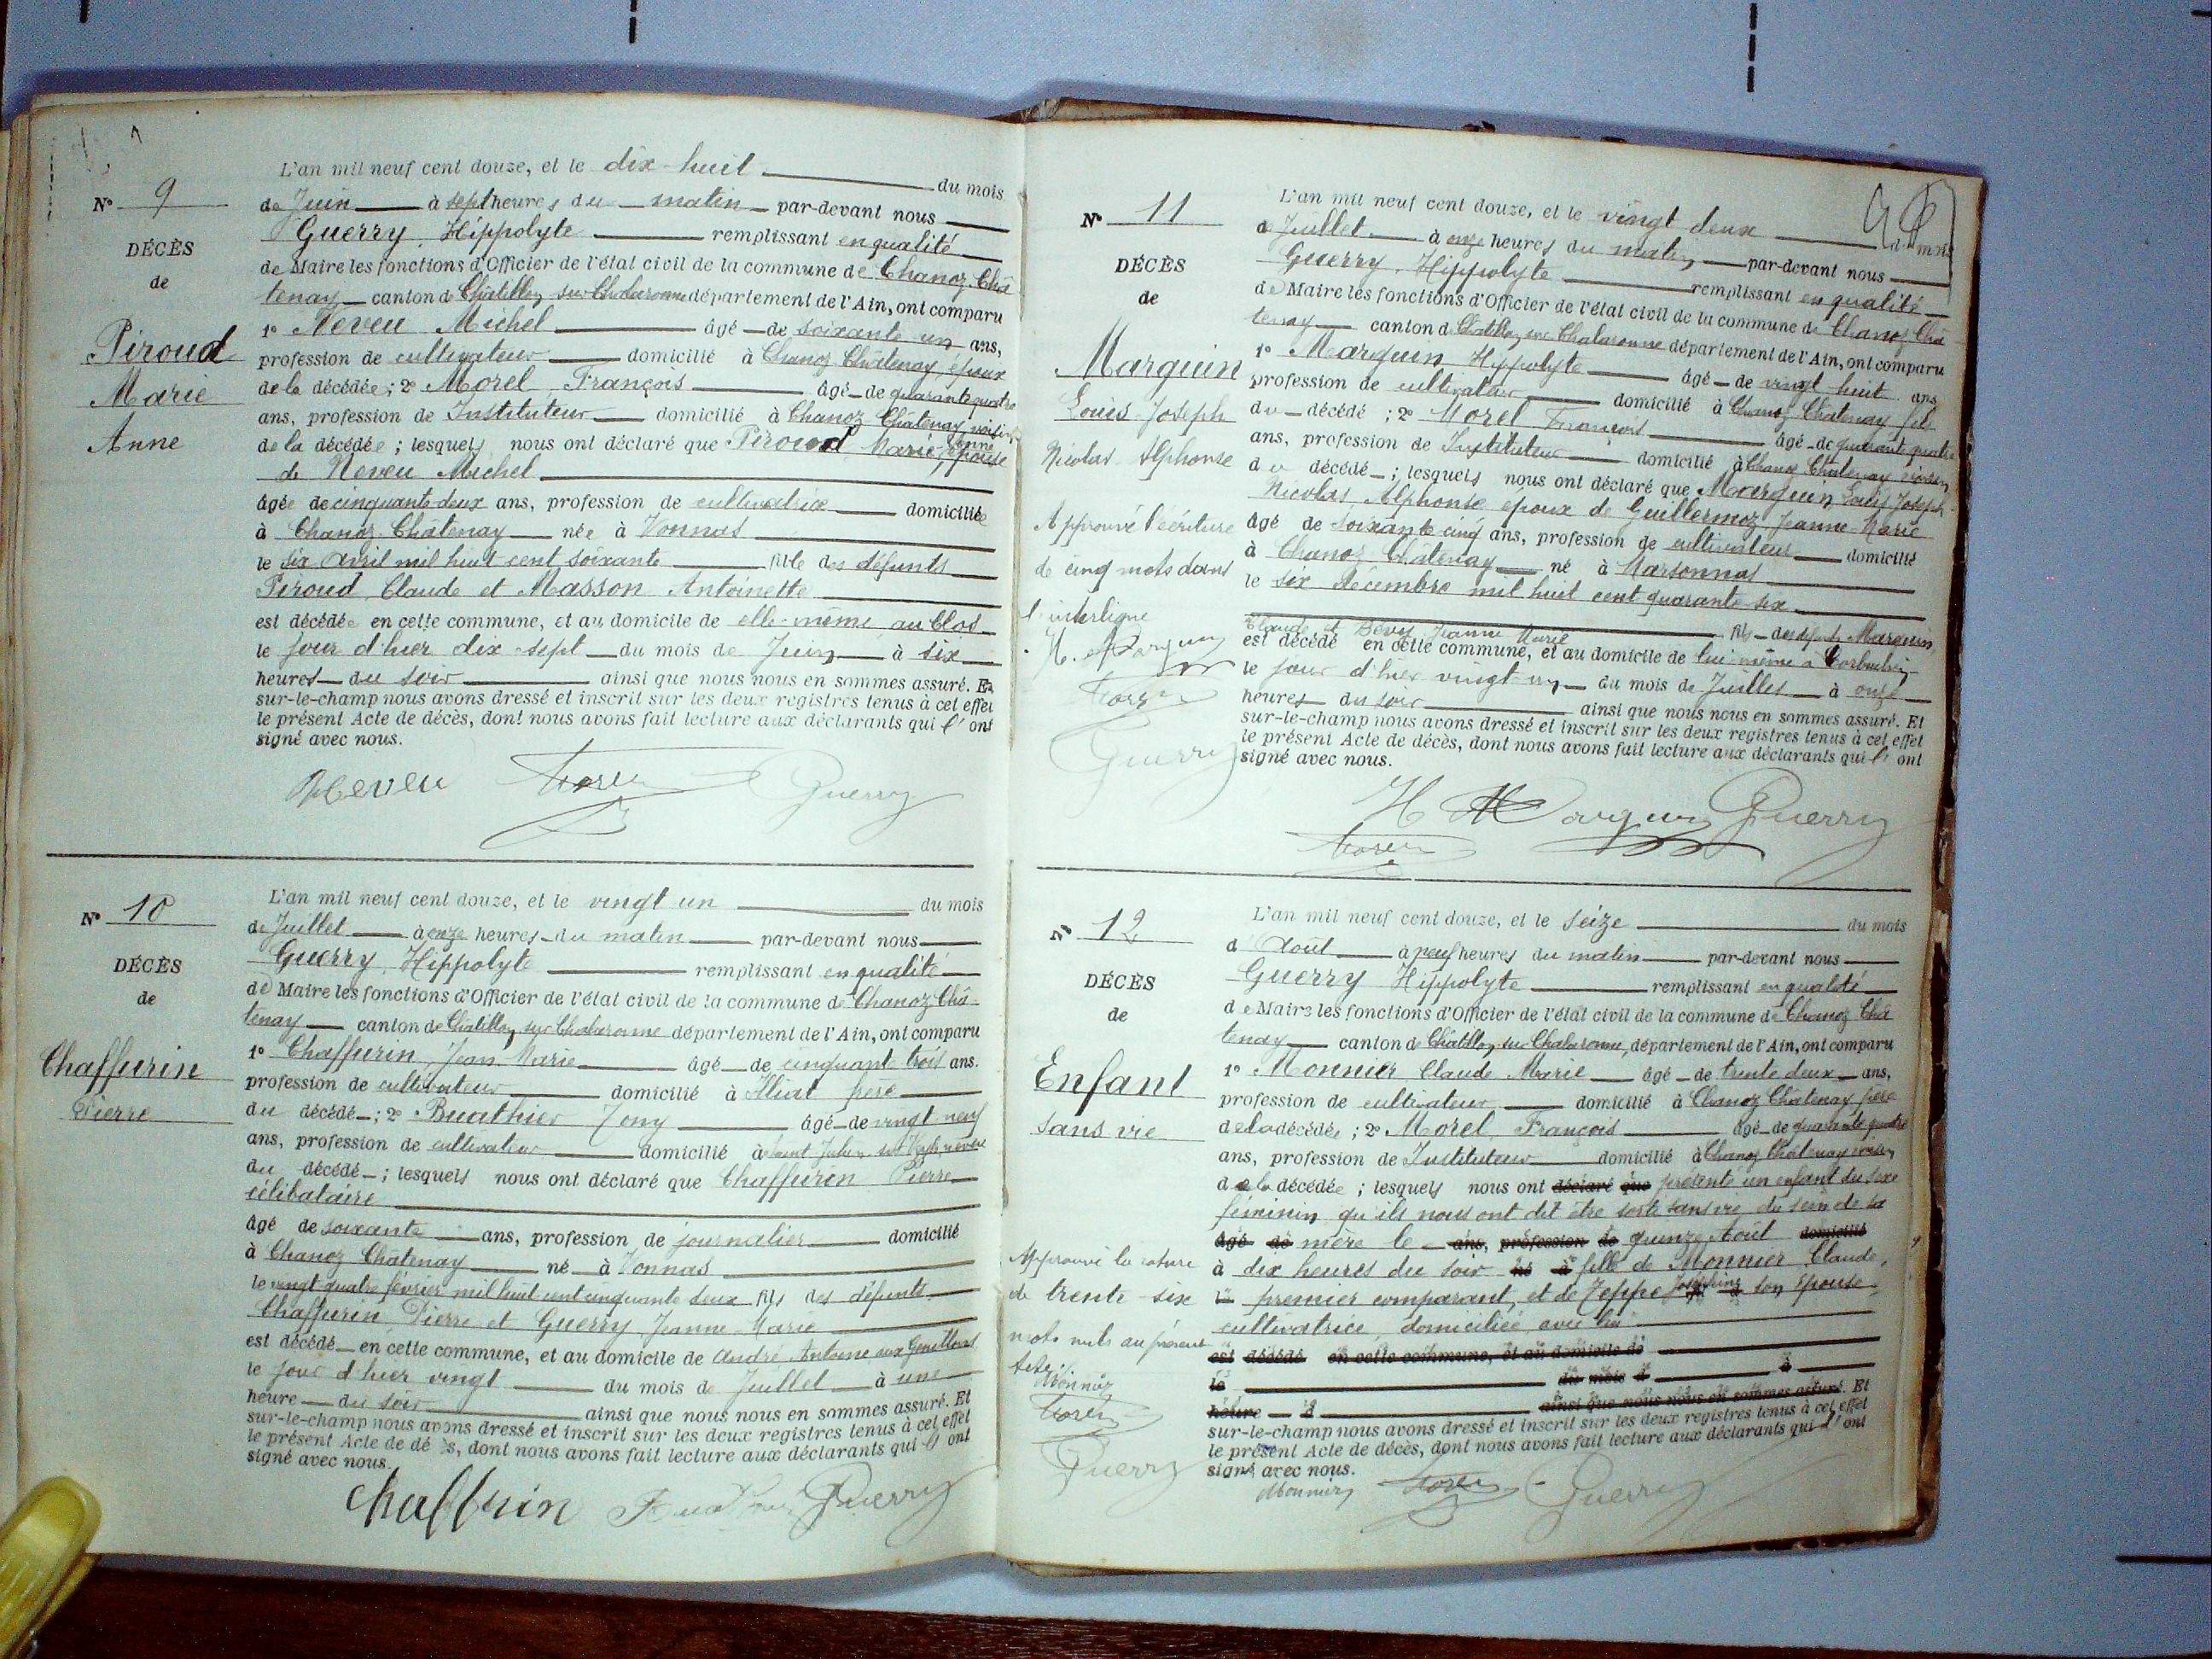 L'an mil neuf cent douze, et le dix-huit du mois
N° 9
de Juin à sept heures du matin par-devant nous
Guerry Hippolyte remplissant en qualité
DÉCÈS
de Maire les fonctions d'Officier de l'état civil de la commune de Chanoz Châ
de
tenay canton de Châtillon sur Chalaronne département de l'Ain, ont comparu
1° Neveu Michel âgé de soixante un ans,
Piroud
profession de cultivateur domicilié à Chanoz Châtenay, époux
Marie
de la décédée ; 2° Morel François âgé de quarante quatre
ans, profession de Instituteur domicilié à Chanoz Châtenay voisin
Anne
de la décédée ; lesquels nous ont déclaré que Piroud Marie Anne épouse
de Neveu Michel
âgée de cinquante deux ans, profession de cultivatrice domiciliée
à Chanoz Châtenay née à Vonnas
le six Avril mil huit cent soixante fille des défunts
Piroud Claude et Masson Antoinette
est décédée en cette commune, et au domicile de elle-même au Clos
le jour d'hier dix-sept du mois de Juin à six
heures du soir ainsi que nous nous en sommes assuré. Et
sur-le-champ nous avons dressé et inscrit sur les deux registres tenus à cet effet
le présent Acte de décès, dont nous avons fait lecture aux déclarants qui l'ont
signé avec nous.
Neveu Morel Guerry
L'an mil neuf cent douze, et le vingt un du mois
N° 10
de Juillet à onze heures du matin par-devant nous
Guerry Hippolyte remplissant en qualité
DÉCÈS
de Maire les fonctions d'Officier de l'état civil de la commune de Chanoz Châ-
de
tenay canton de Châtillon sur Chalaronne département de l'Ain, ont comparu
1° Chaffurin Jean-Marie âgé de cinquant trois ans.
Chaffurin
profession de cultivateur domicilié à Illiat père
Pierre
du décédé ; 2° Buathier Tony âgé de vingt neuf
ans, profession de cultivateur domicilié à Saint Julien sur Veyle neveu
du décédé ; lesquels nous ont déclaré que Chaffurin Pierre
célibataire
âgé de soixante ans, profession de journalier domicilié
à Chanoz Châtenay né à Vonnas
le vingt quatre février mil huit cent cinquante deux fils des défunts
Chaffurin Pierre et Guerry Jeanne Marie
est décédé en cette commune, et au domicile de André Antoine aux
le jour d'hier vingt du mois de Juillet à une
heure du soir ainsi que nous nous en sommes assuré. Et
sur-le-champ nous avons dressé et inscrit sur les deux registres tenus à cet effet
le présent Acte de décès, dont nous avons fait lecture aux déclarants qui l'ont
signé avec nous.
Chaffurin Guerry
L'an mil neuf cent douze, et le vingt deux du mois
N° 11
d Juillet à onze heures du matin par-devant nous
Guerry Hippolyte remplissant en qualité
DÉCÈS
de Maire les fonctions d'Officier de l'état civil de la commune de Chanoz Châ
de
tenay canton de Châtillon sur Chalaronne département de l'Ain, ont comparu
1° Marguin Hippolyte âgé de vingt huit ans
Marguin
profession de cultivateur domicilié à Chanoz Châtenay fils
Louis-Joseph
du décédé ; 2° Morel François âgé de quarante quatre
ans, profession de Instituteur domicilié à Chanoz Châtenay voisin
Nicolas Alphonse
du décédé ; lesquels nous ont déclaré que Marguin Louis Joseph
Nicolas Alphonse époux de Guillermoz Jeanne-Marie
Approuvé l'écriture
âgé de soixante cinq ans, profession de cultivateur domicilié
à Chanoz Châtenay né à Marsonnas
de cinq mots dans
le six décembre mil huit cent quarante six
l'interligne
Claude et Bévy Jeanne Marie fils des défunts Marguin
H. Marguin
est décédé en cette commune, et au domicile de lui même à
le jour d'hier vingt un du mois de Juillet à onze
Morel
heures du soir ainsi que nous nous en sommes assuré. Et
sur-le-champ nous avons dressé et inscrit sur les deux registres tenus à cet effet
Guerry
le présent Acte de décès, dont nous avons fait lecture aux déclarants qui l'ont
signé avec nous.
H Marguin Guerry
Morel
L'an mil neuf cent douze, et le seize du mois
N° 12
d'Août à neuf heures du matin par-devant nous
Guerry Hippolyte remplissant en qualité
DÉCÈS
de Maire les fonctions d'Officier de l'état civil de la commune de Chanoz Châ
de
tenay canton de Châtillon sur Chalaronne, département de l'Ain, ont comparu
1° Monnier Claude Marie âgé de trente deux ans,
Enfant
profession de cultivateur domicilié à Chanoz Châtenay père
sans vie
de la décédée ; 2° Morel François âgé de quarante quatre
ans, profession de Instituteur domicilié à Chanoz Châtenay voisin
de la décédée ; lesquels nous ont déclaré que présenté un enfant du sexe
féminin qu'ils nous ont dit être sorti sans vie du sein de sa
âgé de mère le ans, profession de quinze Août domicilié
Approuvé la rature
à dix heures du soir né à fille de Monnier Claude,
de trente-six
le premier comparant, et de Teppe Joséphine son épouse
cultivatrice, domiciliée avec lui
mots nuls au présent
est décédé en cette commune, et au domicile de
acte
le du mois d à
Monnier
heure d ainsi que nous nous en sommes assuré. Et
Morel
sur-le-champ nous avons dressé et inscrit sur les deux registres tenus à cet effet
le présent Acte de décès, dont nous avons fait lecture aux déclarants qui l'ont
Guerry
signé avec nous.
Monnier Morel Guerry